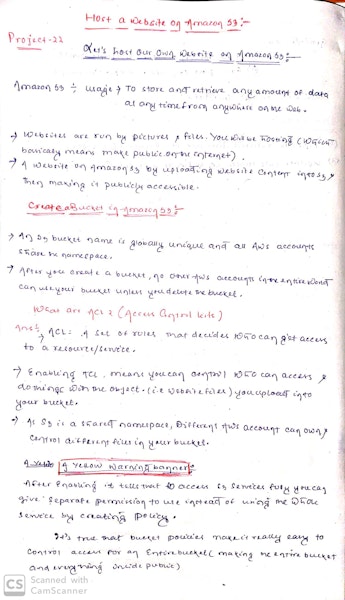 Host a website on Amazon S3:-
Project-22
Let's host our own website on Amazon S3:-
Amazon S3 ÷ usage → To store and retrieve any amount of data
at any time from anywhere on the web.
→ Websites are run by pictures & files. You will be hosting (which
basically means make public on the internet).
→ A website on Amazon S3 by uploading website content into S3 &
then making it publicly accessible.
Create a Bucket in Amazon S3:-
→ An S3 bucket name is globally unique and all AWS accounts
share the namespace.
→ After you create a bucket, no other AWS accounts in the entire world
can use your bucket unless you delete the bucket.
What are ACL? (Access Control lists)
Ans:
→ ACL: A set of rules that decides who can get access
to a resource/service.
→ Enabling ACL, means you can control who can access &
do things with the object. (i.e website files) you upload into
your bucket.
→ As S3 is a shared namespace, Different AWS account can own &
control different files in your bucket.
A Yellow Warning banner:
After enabling it tells that to access S3 services fully you can
give separate permission to use instead of using the whole
service by creating policy.
It's true that bucket policies make it really easy to
control access for an Entire bucket (making the entire bucket
and everything inside public)
CS Scanned with
CamScanner